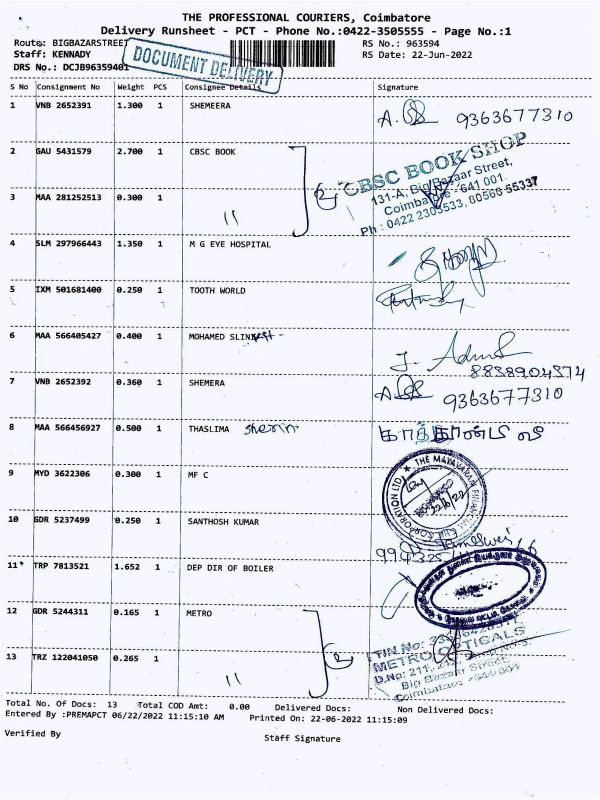 THE PROFESSIONAL COURIERS, Coimbatore
Delivery Runsheet - PCT - Phone No.:0422-3505555 - Page No.:1
Route: BIGBAZARSTREET RS No.: 963594
Staff: KENNADY RS Date: 22-Jun-2022
DRS No.: DCJB96359401
DOCUMENT DELIVERY
S No Consignment No Weight PCS Consignee Details Signature
1 VNB 2652391 1.300 1 SHEMEERA 9363677310
2 GAU 5431579 2.700 1 CBSC BOOK
CBSC BOOK SHOP
131-A, Big Bazaar Street,
Coimbatore - 641 001.
Ph : 0422 2303533, 80568 55337
3 MAA 281252513 0.300 1 "
4 SLM 297966443 1.350 1 M G EYE HOSPITAL
5 IXM 501681400 0.250 1 TOOTH WORLD
6 MAA 566405427 0.400 1 MOHAMED
8838904374
7 VNB 2652392 0.360 1 SHEMERA 9363677310
8 MAA 566456927 0.500 1 THASLIMA Sherin
9 MYD 3622306 0.300 1 MF C
THE MAYAVARAM FINANCIAL CORPORATION LTD
22/6/22
10 GDR 5237499 0.250 1 SANTHOSH KUMAR
11* TRP 7813521 1.652 1 DEP DIR OF BOILER
12 GDR 5244311 0.165 1 METRO
TIN No:
METRO OPTICALS
D.No: 211,
Big Bazaar Street,
Coimbatore
13 TRZ 122041050 0.265 1 "
Total No. Of Docs: 13 Total COD Amt: 0.00 Delivered Docs: Non Delivered Docs:
Entered By :PREMAPCT 06/22/2022 11:15:10 AM Printed On: 22-06-2022 11:15:09
Verified By Staff Signature